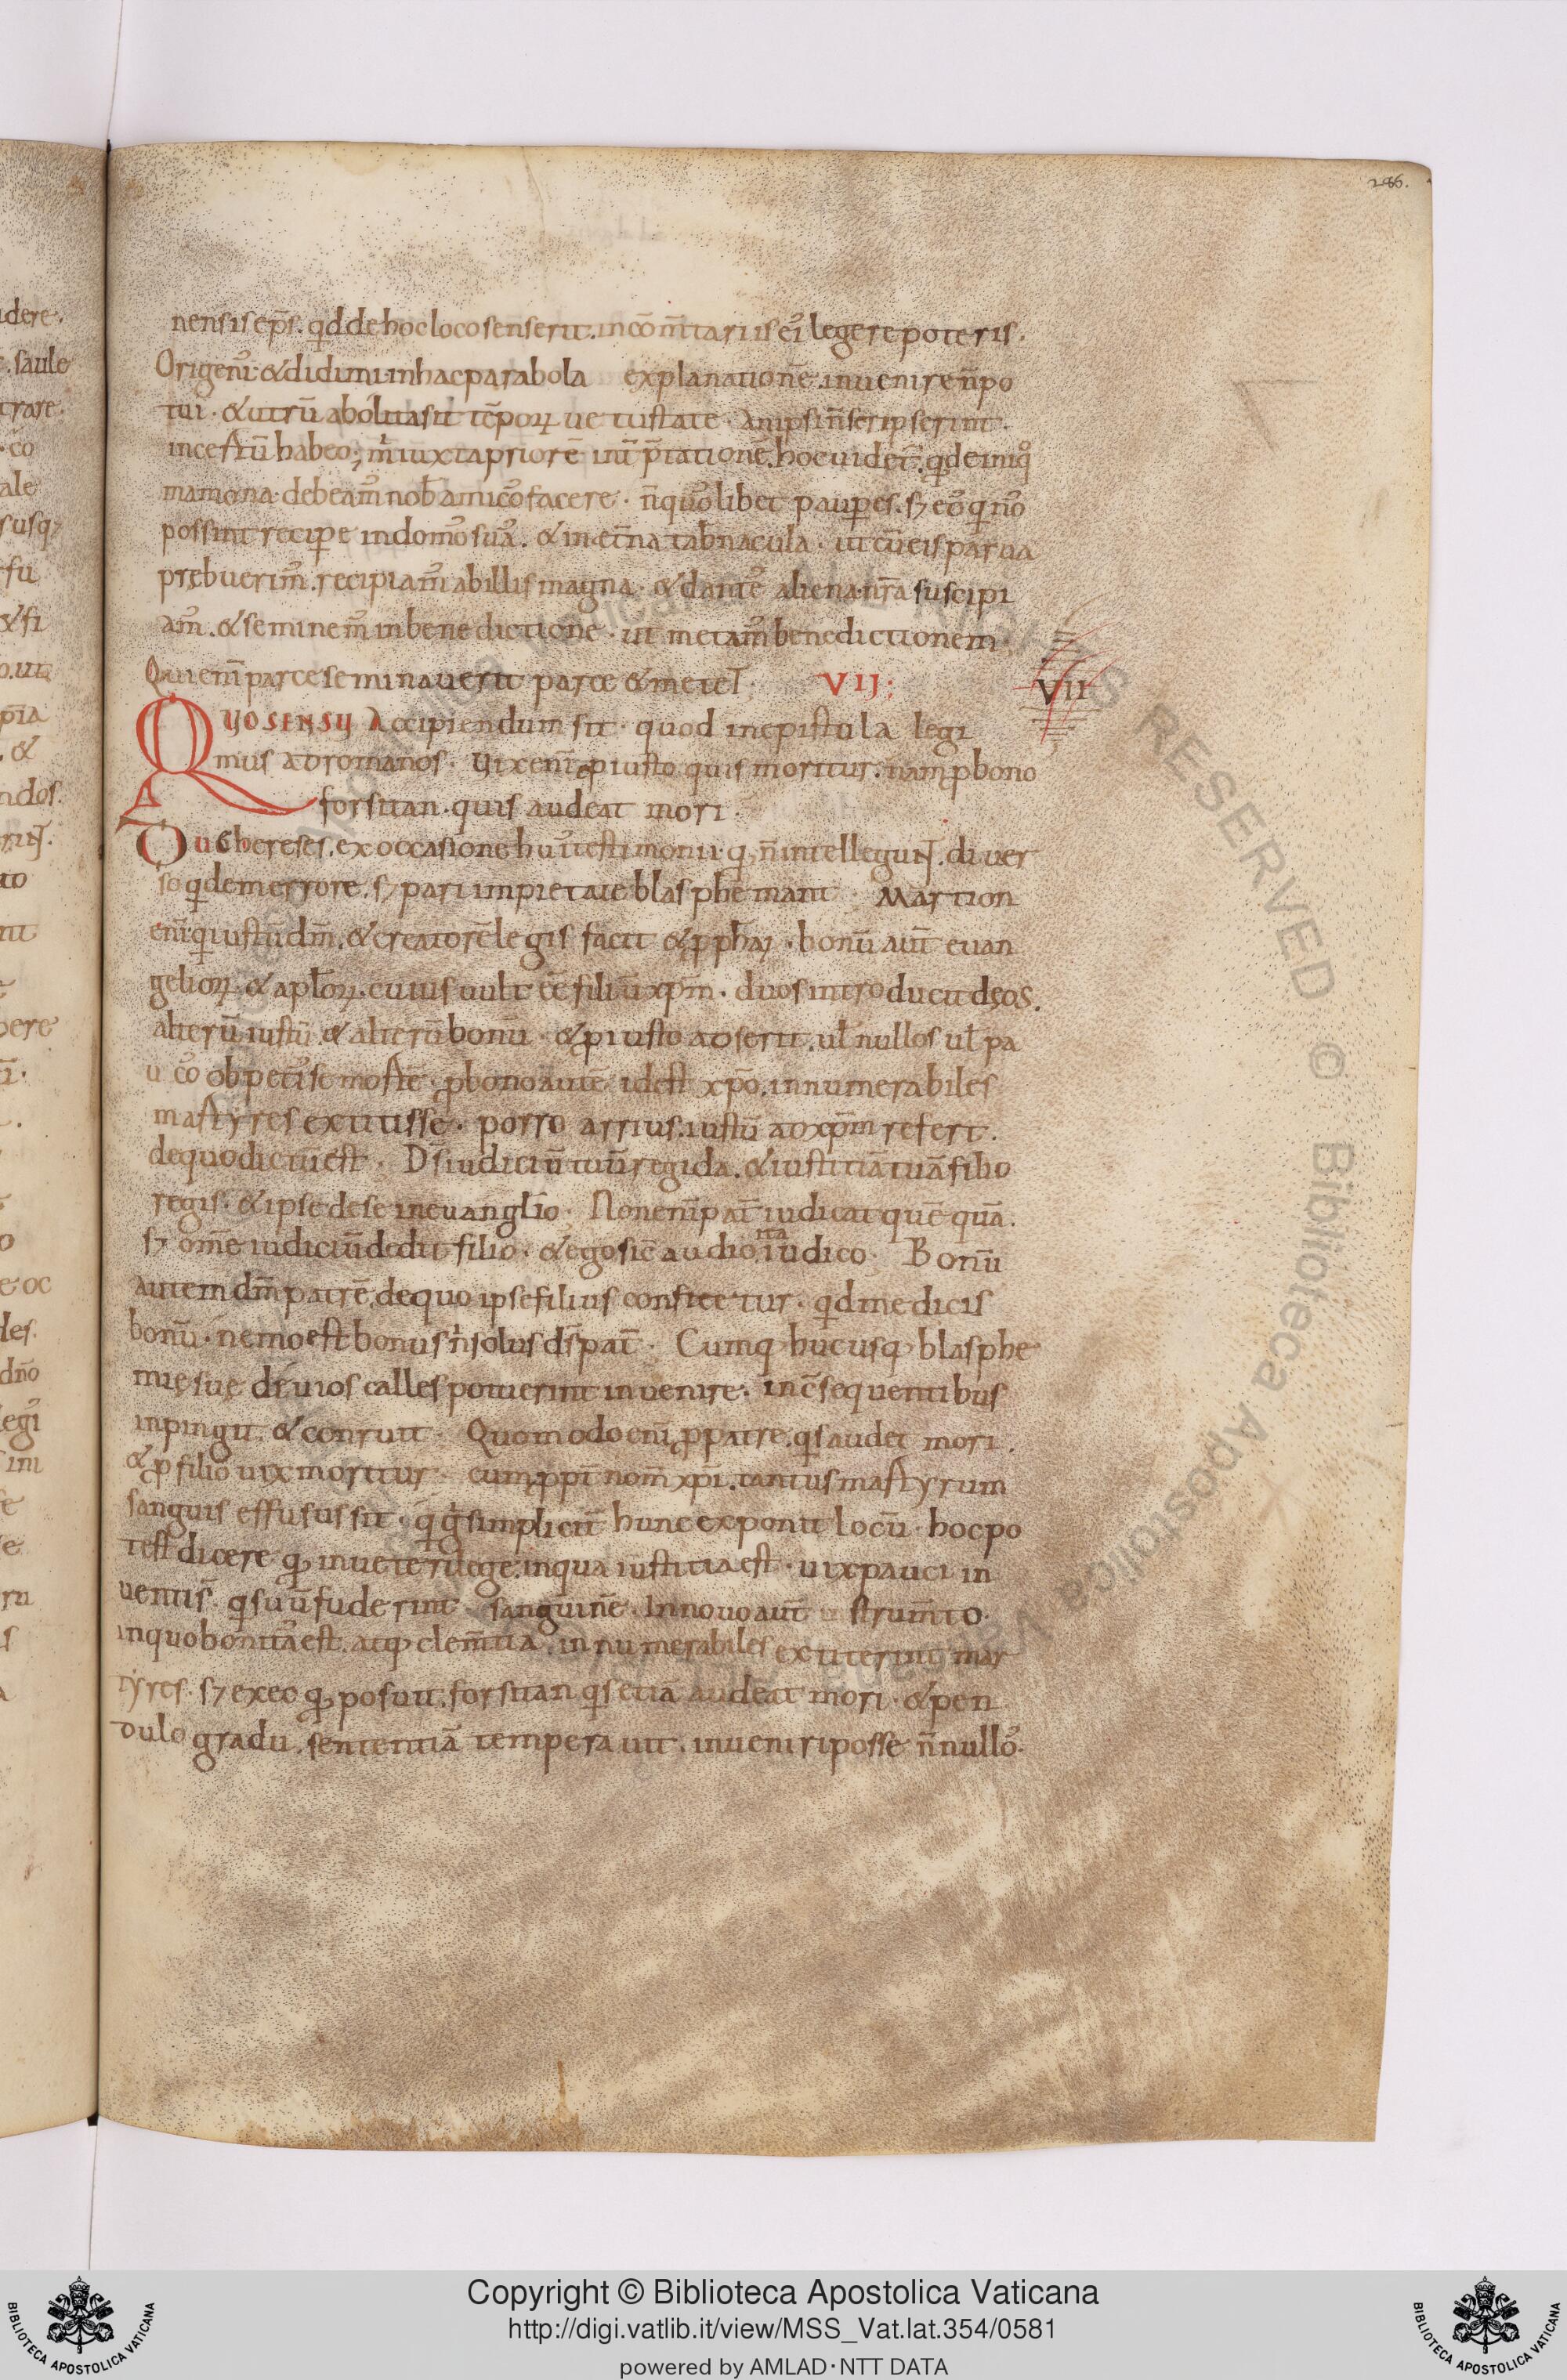 286.
nensis ep̄s. qd de hoc loco senserit. in cōm̄tariis ei᾽ legere poteris.
Origeni᾽ & didimi in hac parabola explanationē. invenire n̄ po
tui. & utrū abolita sit tēporꝝ uetustate. an ipsi n̄ scripserint.
incertū habeo; m̄ iuxta priorē int̄p̄tationē. hoc uidet᾽. qd de iniq᾽
mamona. debeam᾽ nob̄ amico᾽ facere. n̄ quo᾽libet paup̱es. s; eo᾽ qi no᾽
possint recip̱e in domo᾽ sua᾽. & in et̄na tab̄nacula. ut cū eis parva
prębuerim᾽. recipiam᾽ ab illis magna. & dante᾽ aliena. n̄ra suscipi
am᾽. & seminem᾽ in benedictione. ut metam᾽ benedictionem.
Qui eni᾽ parce seminauerit parce & metet. VII;
VII
QUO SENSU Accipiendum sit. quod in epistula legi
mus ad romanos. Vix eni᾽ p̱ iusto quis moritur. nam ꝓ bono
forsitan. quis audeat mori.
Duę hereses. ex occasione hui᾽ testimonii. q̨ n̄ intellegunt. diver
so qdem errore. s; pari impietate blasphemant. Martion
eni᾽ qi iustū dm̄. & creatorē legis facit & ꝓphaꝝ. bonū aut̄ evan
gelioꝝ & apl̄oꝝ. cuius vult eē filiū xp̄m. duos introducit deos.
alterū iustū. & alterū bonū. & p̱ iusto adserit. ul̄ nullos ul̄ pa
uco᾽ obpetisse mortē. ꝓ bono autē id est xp̄o. innumerabiles
martyres extitisse. porro arrius. iustū ad xp̄m refert.
de quo dictū est. Ds̄ iudiciū tuū regi da. & iustitiā tuā filio
regis. & ipse de se in evanglīo. Non eni᾽ pat̄ iudicat quē quā.
s; om̄e iudiciū dedit filio. & ego sic̄ audio, ita iudico. Bonū
autem dm̄ patrē. de quo ipse filius confitetur. qd me dicis
bonū. nemo est bonus n̄ solus ds̄ pat̄. Cumq; hucusq; blasphe
mię suę devios calles potuerint invenire. in c̄sequentibus
inpingit. & conruit. Quomodo eni᾽ ꝓ patre. qis audet mori.
& ꝓ filio vix moritur. cum ꝓpt̄ nom̄ xp̄i. tantus martyrum
sanguis effusus sit. qi g̊ simpliciť hunc exponit locū. hoc po
test dicere qd in veteri lege. in qua iustitia est. vix pauci in
uenti s̄. qi suū fuderint sanguinē. In novo aut̄ strum̄to.
in quo bonita᾽ est. atq; clem̄tia. innumerabiles extiterint mar
tyres. s; ex eo qd posuit. forsitan qis etiā audeat mori. & pen
dulo gradu. sententiā temperavit. inveniri posse n̄nullo᾽.
idere.
. saule
trare.
ale
susq;
& fi
ndos.
pere
des.
dn̄o
Copyright © Biblioteca Apostolica Vaticana
http://digi.vatlib.it/view/MSS_Vat.lat.354/0581
powered by AMLAD·NTT DATA
BIBLIOTECA APOSTOLICA VATICANA
BIBLIOTECA APOSTOLICA VATICANA